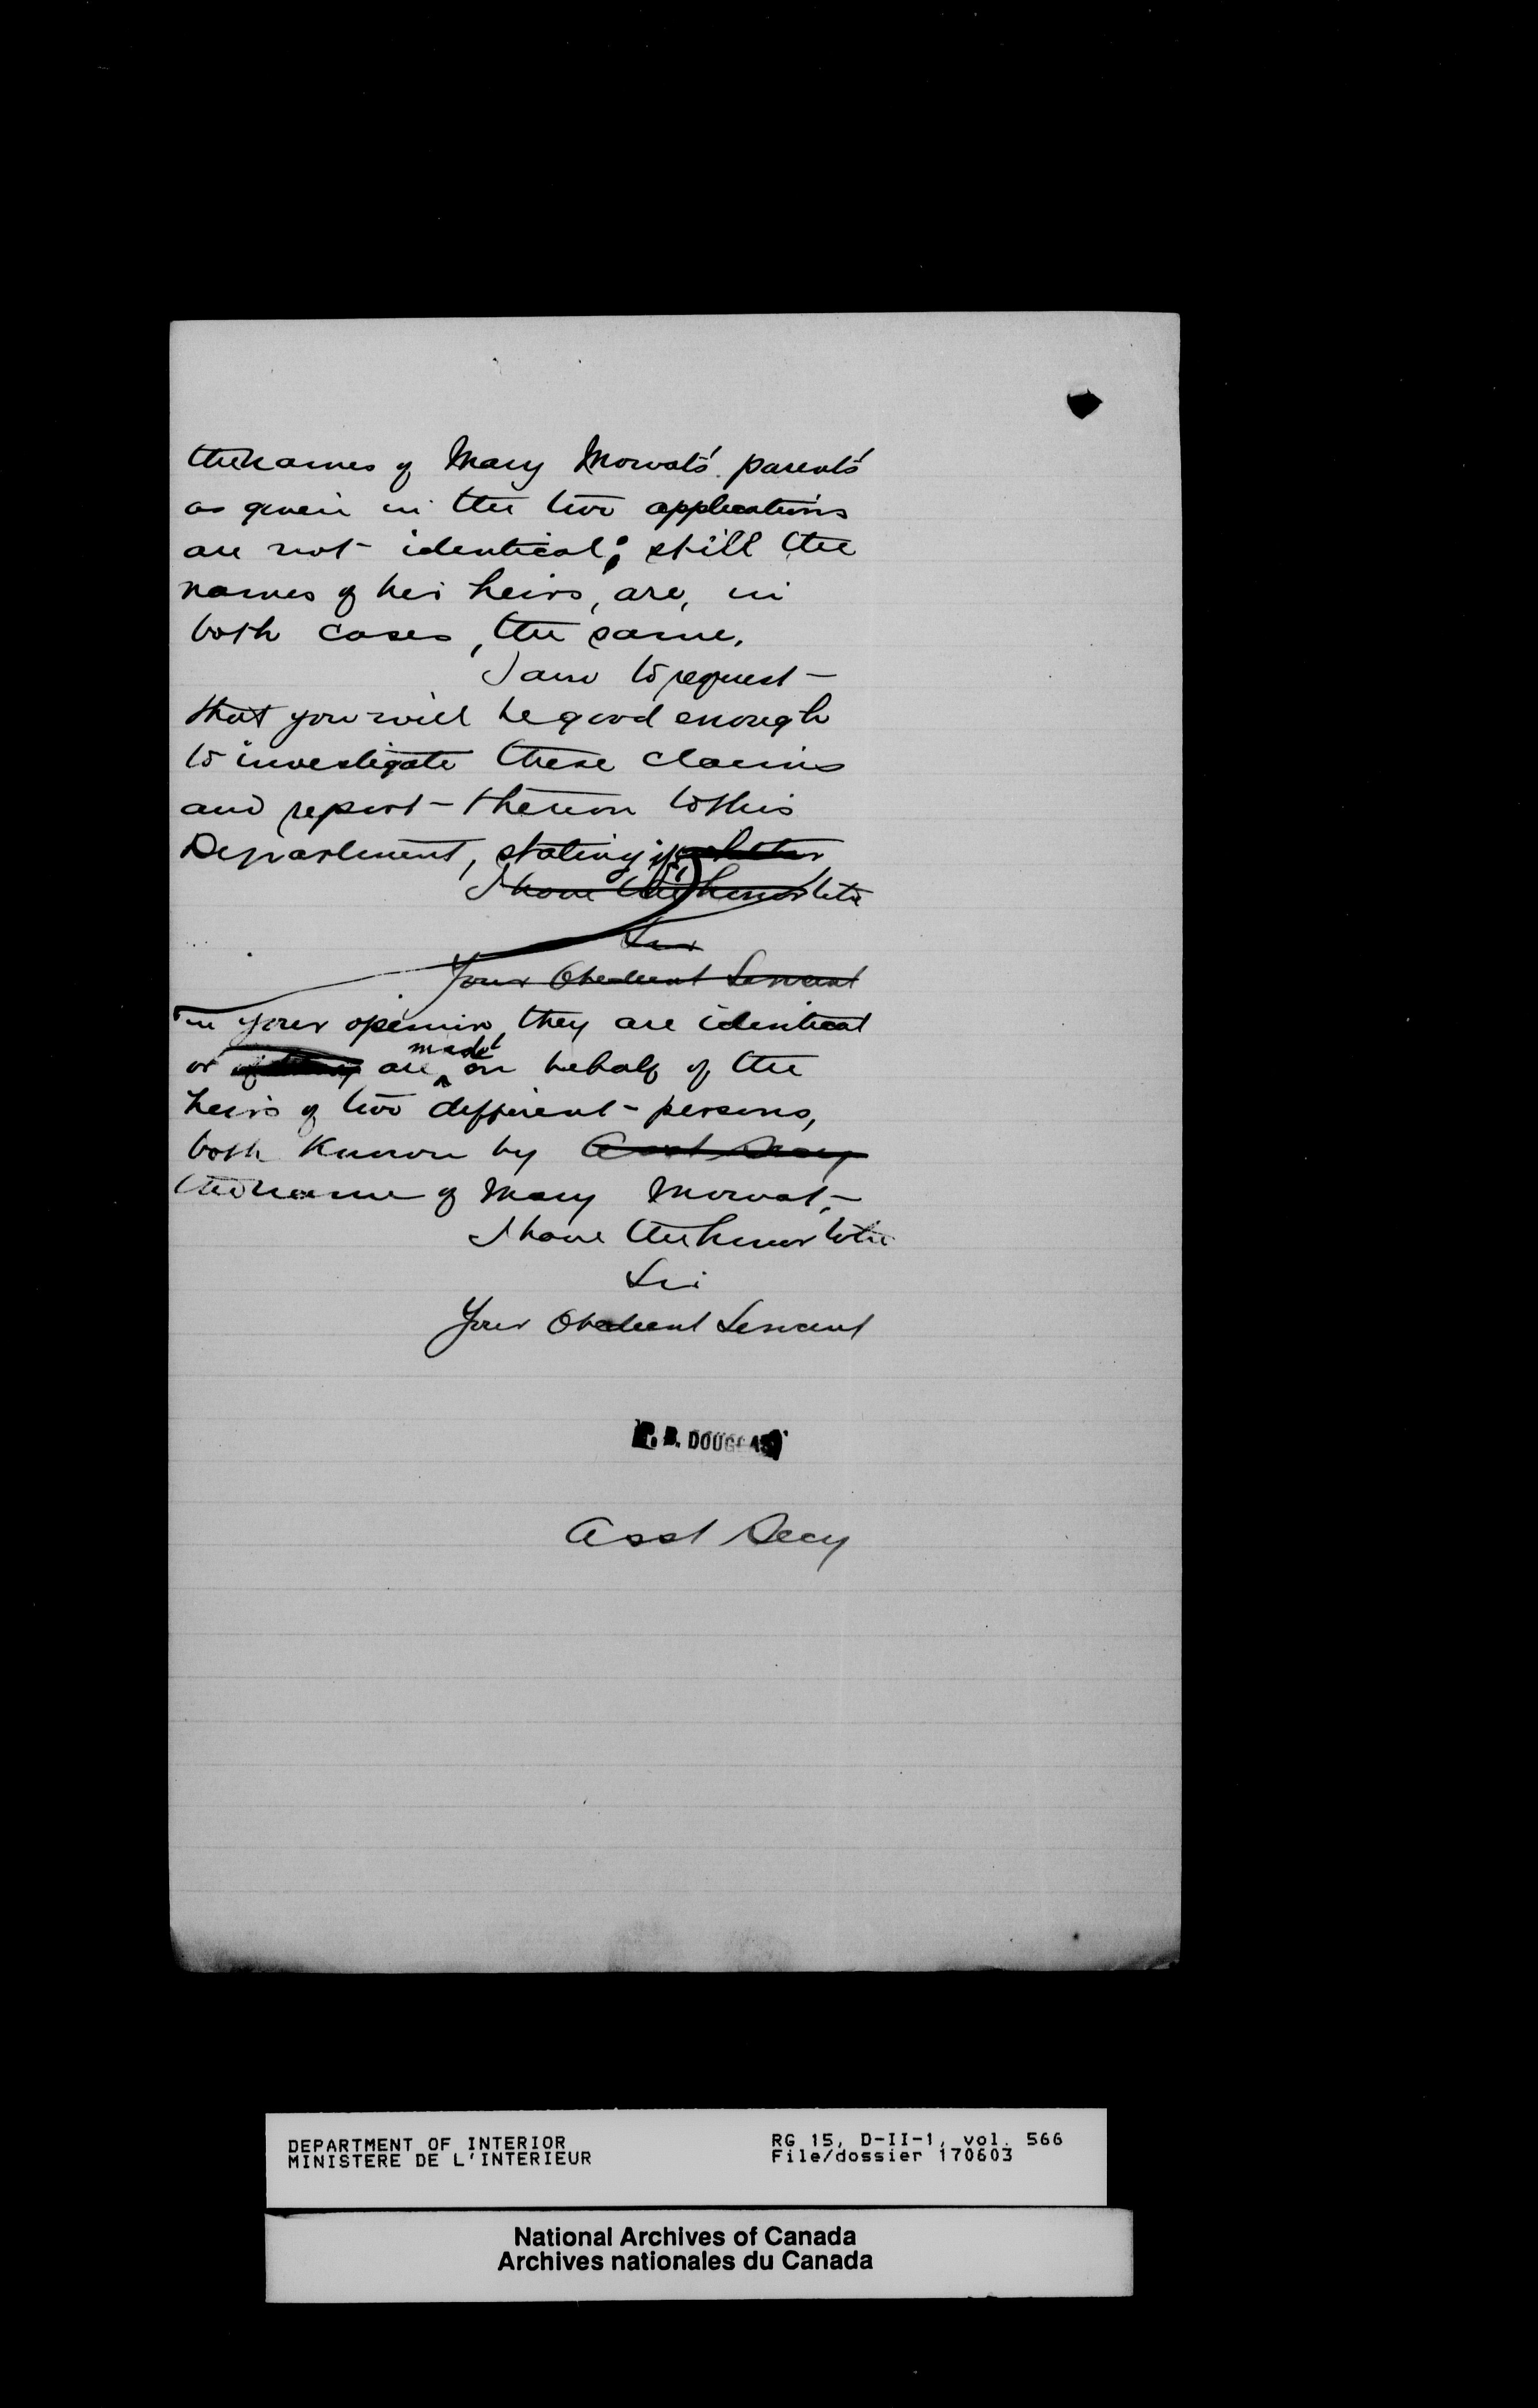 the names of Mary Mowat's parents
as given in the two applications
are not identical; still the
names of her heirs, are, in
both cases, the same.
I am to request
that you will be good enough
to investigate these claims
and report thereon to this
Department, stating if whether
I have the honor to be
Sir
Your Obedient Servant
in your opinion, they are identical
or are made on behalf of the
heirs of two different persons,
both known by Asst Secy
the name of Mary Mowat.
I have the honor to be
Sir
Your Obedient Servant
P. B. DOUGLAS
Asst Secy
DEPARTMENT OF INTERIOR
MINISTERE DE L'INTERIEUR
RG 15, D-II-1, vol. 566
File/dossier 170603
National Archives of Canada
Archives nationales du Canada